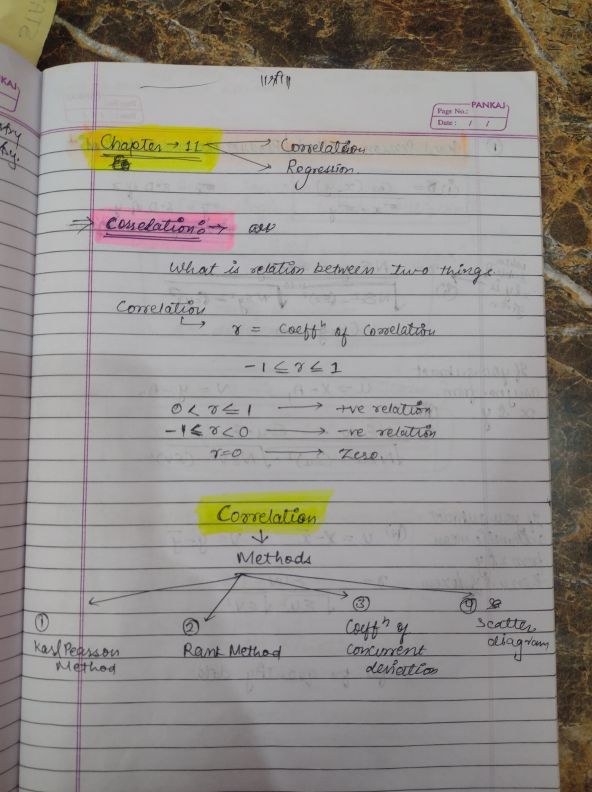 ॥श्री॥
PANKAJ
Page No.:
Date: / /
Chapter → 11 → Correlation
→ Regression.
⇒ Correlation:→
What is relation between two things.
Correlation
↳ r = Coeffⁿ of Correlation
-1 ≤ r ≤ 1
0 < r ≤ 1 → +ve relation
-1 ≤ r < 0 → -ve relation
r=0 → Zero.
Correlation
↓
Methods
① Karl Pearson Method
② Rank Method
③ Coeffⁿ of concurrent deviation
④ Scatter diagram